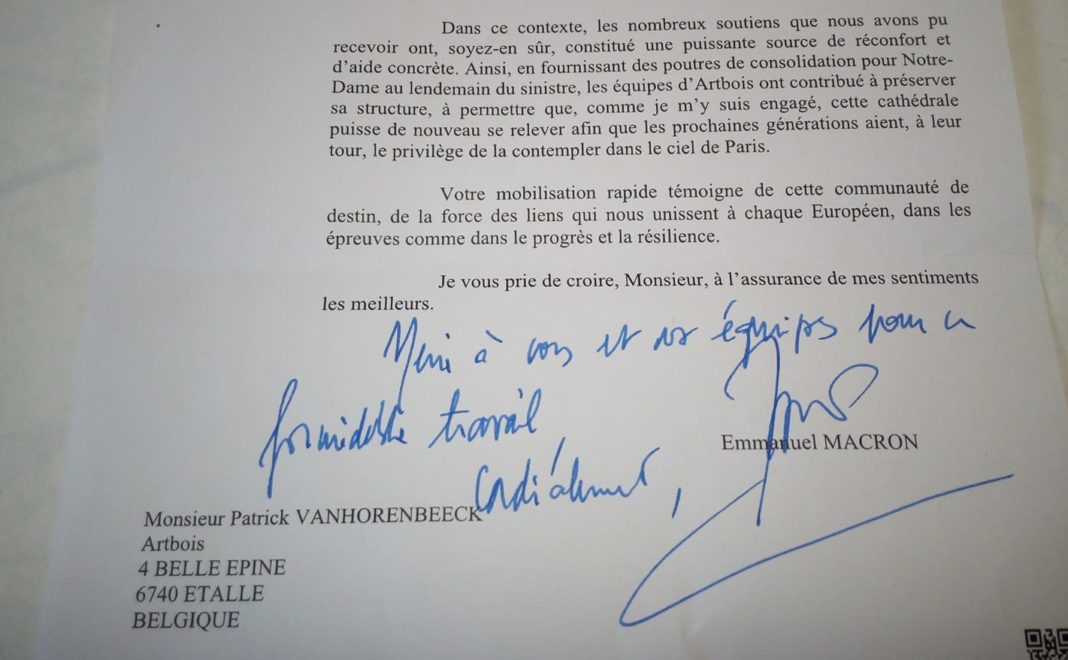 Dans ce contexte, les nombreux soutiens que nous avons pu
recevoir ont, soyez-en sûr, constitué une puissante source de réconfort et
d’aide concrète. Ainsi, en fournissant des poutres de consolidation pour Notre-
Dame au lendemain du sinistre, les équipes d’Artbois ont contribué à préserver
sa structure, à permettre que, comme je m’y suis engagé, cette cathédrale
puisse de nouveau se relever afin que les prochaines générations aient, à leur
tour, le privilège de la contempler dans le ciel de Paris.
Votre mobilisation rapide témoigne de cette communauté de
destin, de la force des liens qui nous unissent à chaque Européen, dans les
épreuves comme dans le progrès et la résilience.
Je vous prie de croire, Monsieur, à l’assurance de mes sentiments
les meilleurs.
Merci à vous et vos équipes pour ce
formidable travail
Cordialement,
Emmanuel MACRON
Monsieur Patrick VANHORENBEECK
Artbois
4 BELLE EPINE
6740 ETALLE
BELGIQUE